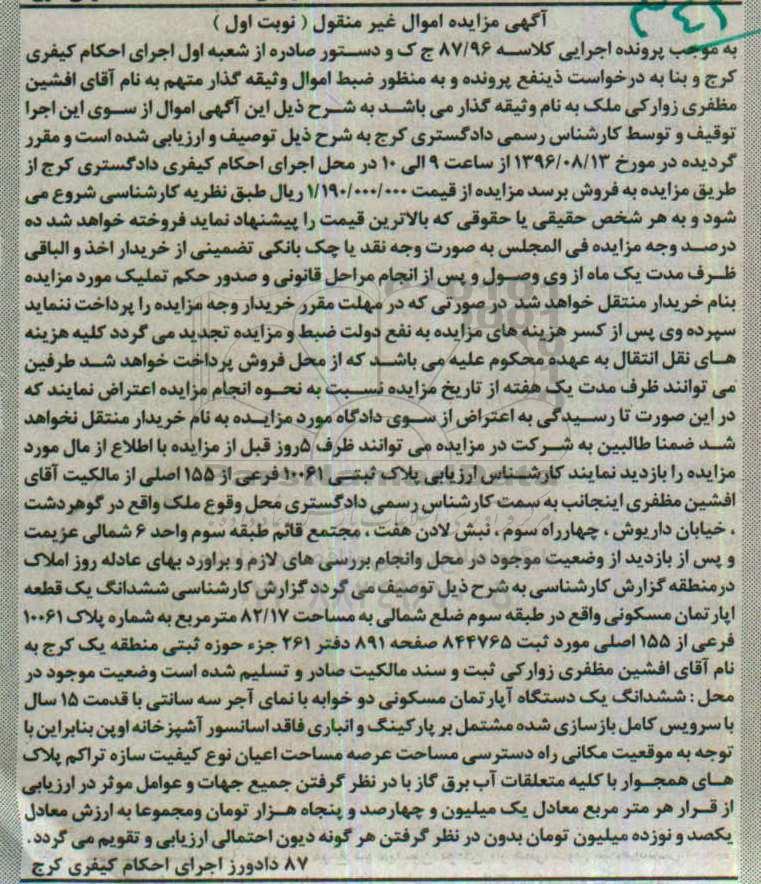 آگهی مزایده اموال غیر منقول ( نوبت اول )
به موجب پرونده اجرایی کلاسه ۸۷/۹۶ ج ک و دستور صادره از شعبه اول اجرای احکام کیفری
کرج و بنا به درخواست ذینفع پرونده و به منظور ضبط اموال وثیقه گذار متهم به نام آقای افشین
مظفری زوارکی ملک به نام وثیقه گذار می باشد به شرح ذیل این آگهی اموال از سوی این اجرا
توقیف و توسط کارشناس رسمی دادگستری کرج به شرح ذیل توصیف و ارزیابی شده است و مقرر
گردیده در مورخ ۱۳۹۶/۰۸/۱۳ از ساعت ۹ الی ۱۰ در محل اجرای احکام کیفری دادگستری کرج از
طریق مزایده به فروش برسد مزایده از قیمت ۱/۱۹۰/۰۰۰/۰۰۰ ریال طبق نظریه کارشناسی شروع می
شود و به هر شخص حقیقی یا حقوقی که بالاترین قیمت را پیشنهاد نماید فروخته خواهد شد ده
درصد وجه مزایده فی المجلس به صورت وجه نقد یا چک بانکی تضمینی از خریدار اخذ و الباقی
ظرف مدت یک ماه از وی وصول و پس از انجام مراحل قانونی و صدور حکم تملیک مورد مزایده
بنام خریدار منتقل خواهد شد در صورتی که در مهلت مقرر خریدار وجه مزایده را پرداخت ننماید
سپرده وی پس از کسر هزینه های مزایده به نفع دولت ضبط و مزایده تجدید می گردد کلیه هزینه
های نقل انتقال به عهده محکوم علیه می باشد که از محل فروش پرداخت خواهد شد طرفین
می توانند ظرف مدت یک هفته از تاریخ مزایده نسبت به نحوه انجام مزایده اعتراض نمایند که
در این صورت تا رسیدگی به اعتراض از سوی دادگاه مورد مزایده به نام خریدار منتقل نخواهد
شد ضمنا طالبین به شرکت در مزایده می توانند ظرف ۵روز قبل از مزایده با اطلاع از مال مورد
مزایده را بازدید نمایند کارشناس ارزیابی پلاک ثبتی ۱۰۰۶۱ فرعی از ۱۵۵ اصلی از مالکیت آقای
افشین مظفری اینجانب به سمت کارشناس رسمی دادگستری محل وقوع ملک واقع در گوهردشت
، خیابان داریوش ، چهارراه سوم ، نبش لادن هفت ، مجتمع قائم طبقه سوم واحد ۶ شمالی عزیمت
و پس از بازدید از وضعیت موجود در محل وانجام بررسی های لازم و براورد بهای عادله روز املاک
درمنطقه گزارش کارشناسی به شرح ذیل توصیف می گردد گزارش کارشناسی ششدانگ یک قطعه
اپارتمان مسکونی واقع در طبقه سوم ضلع شمالی به مساحت ۸۲/۱۷ مترمربع به شماره پلاک ۱۰۰۶۱
فرعی از ۱۵۵ اصلی مورد ثبت ۸۴۴۷۶۵ صفحه ۸۹۱ دفتر ۲۶۱ جزء حوزه ثبتی منطقه یک کرج به
نام آقای افشین مظفری زوارکی ثبت و سند مالکیت صادر و تسلیم شده است وضعیت موجود در
محل : ششدانگ یک دستگاه آپارتمان مسکونی دو خوابه با نمای آجر سه سانتی با قدمت ۱۵ سال
با سرویس کامل بازسازی شده مشتمل بر پارکینگ و انباری فاقد اسانسور آشپزخانه اوپن بنابراین با
توجه به موقعیت مکانی راه دسترسی مساحت عرصه مساحت اعیان نوع کیفیت سازه تراکم پلاک
های همجوار با کلیه متعلقات آب برق گاز با در نظر گرفتن جمیع جهات و عوامل موثر در ارزیابی
از قرار هر متر مربع معادل یک میلیون و چهارصد و پنجاه هزار تومان ومجموعا به ارزش معادل
یکصد و نوزده میلیون تومان بدون در نظر گرفتن هر گونه دیون احتمالی ارزیابی و تقویم می گردد.
۸۷ دادورز اجرای احکام کیفری کرج